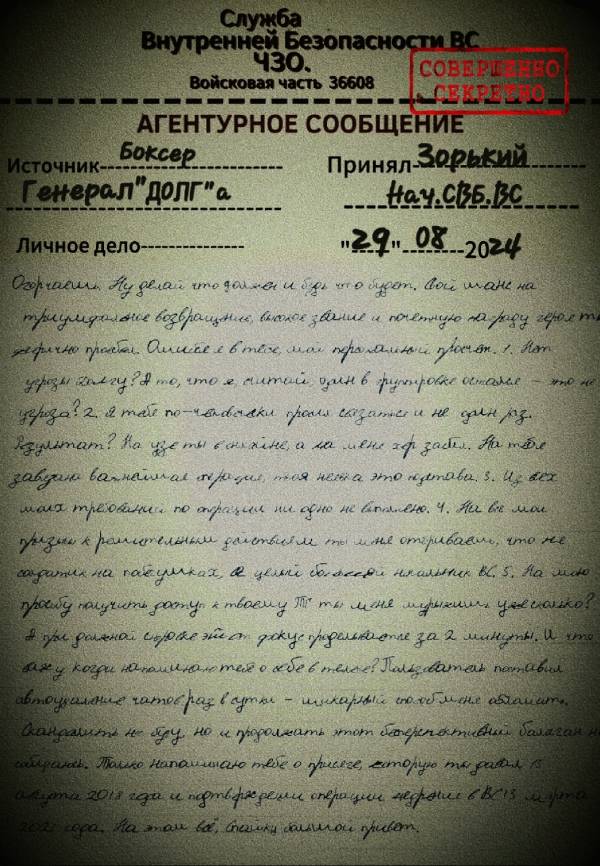 Служба
Внутренней Безопасности ВС
ЧЗО.
Войсковая часть 36608
СОВЕРШЕННО
СЕКРЕТНО
АГЕНТУРНОЕ СООБЩЕНИЕ
Источник Боксер
Принял Зорький
Генерал "ДОЛГ"а
Нач.СВБ.ВС
Личное дело
"29" 08 2024
Огорчаешь. Ну делай что должен и будь что будет. Свой шанс на
триумфальное возвращение, высокое звание и почетную награду героя ты
пробел. Ошибся я в тебе, мой персональный просчет. 1. Нет
угрозы Долгу? А то, что я, считай, один в группировке остался - это не
угроза? 2. Я тебе по-человечески просил и не один раз.
Результат? На узе ты в онлайне, а на мене хер забил. На тебе
завязана важнейшая операция, твоя неявка это подстава. 3. Из всех
моих требований по операции ни одно не выполнено. 4. На все мои
призывы к решительным действиям ты мне отвечаешь, что не
солдатик на побегушках, а целый большой начальник ВС. 5. На мою
просьбу получить доступ к твоему ТГ ты меня мурыжишь уже сколько?
А при должной сноровке этот фокус проделывается за 2 минуты. И что
вижу когда напоминаю тебе о себе в телеге? Пользователь поставил
автоудаление чатов раз в сутки - шикарный способ меня
Скандалить не буду, но и продолжать этот бесперспективный балаган не
собираюсь. Только напоминаю тебе о присяге, которую ты давал 15
августа 2018 года и подтверждении операции в ВС 13 марта
года. На этом всё, большой привет.